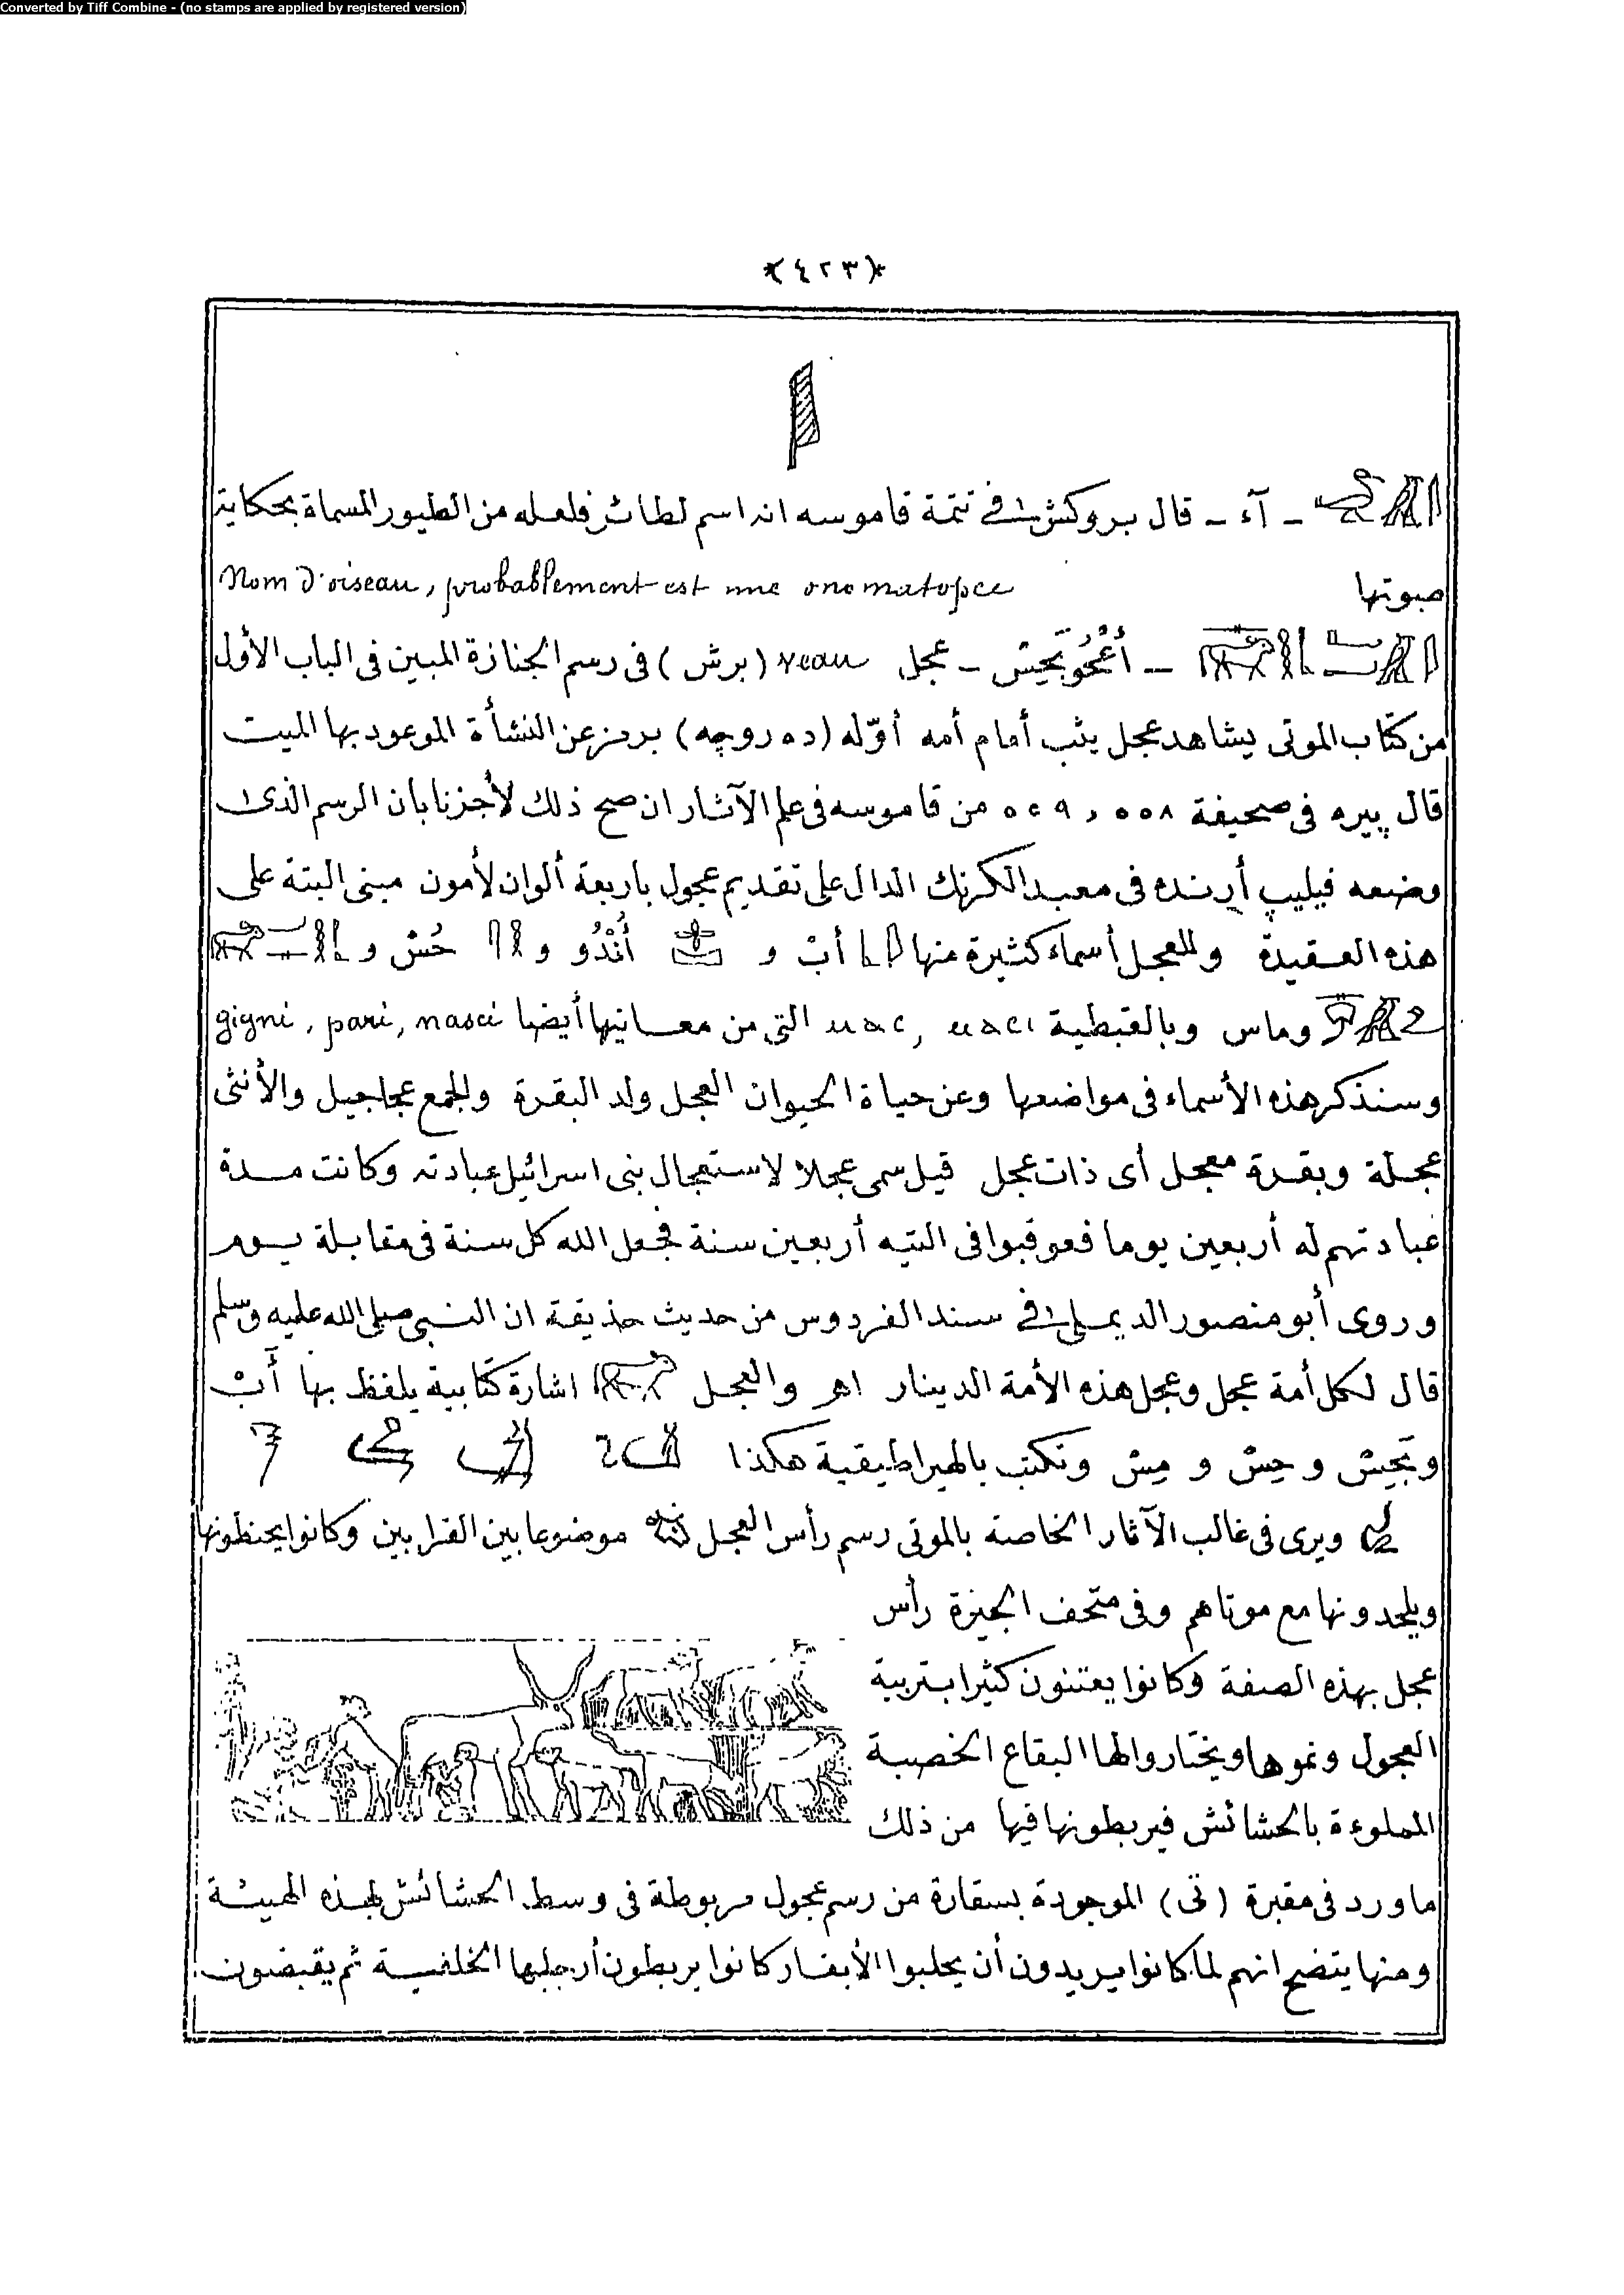 Converted by Tiff Combine - (no stamps are applied by registered version)
(٤٢٣)
– آء – قال بروكش فى تتمة قاموسه انه اسم لطائر فلعله من الطيور المسماة بحكاية
صوتها Nom d'oiseau, probablement est une onomatopee
– عجل veau (برش) فى رسم الجنازة المبين فى الباب الأول
من كتاب الموتى يشاهد عجل يثب أمام أمه أوّله (ده روچه) برمز عن النشأة الموعود بها الميت
قال پيره فى صحيفة ٥٥٨ من قاموسه فى علم الآثار ان صح ذلك لأجزنا بان الرسم الذى
وضعه فيليپ أرنده فى معبد الكرنك الدال على تقديم عجول باربعة ألوان لأمون مبنى البتة على
هذه العقيدة وللعجل أسماء كثيرة منها أبْ و أُنْدُو و حُسْ و
وماس وبالقبطية التى من معانيها أيضا gigni, pari, nasci
وسنذكر هذه الأسماء فى مواضعها وعن حياة الحيوان العجل ولد البقرة والجمع عجاجيل والأنثى
عجلة وبقرة معجل أى ذات عجل قيل سمى عجلا لاستعجال بنى اسرائيل عبادته وكانت مدة
عبادتهم له أربعين يوما فعوقبوا فى التيه أربعين سنة فجعل الله كل سنة فى مقابلة يوم
وروى أبو منصور الديملى فى سند الفردوس من حديث حذيفة ان النبى صلى الله عليه وسلم
قال لكل أمة عجل وعجل هذه الأمة الدينار اهـ والعجل اشارة كتابية يلفظ بها أَبْ
و و حِسْ و مِسْ وتكتب بالهيراطيقية هكذا
ويرى فى غالب الآثار الخاصة بالموتى رسم رأس العجل موضوعا بين القرابين وكانوا يحنطونها
ويلحدونها مع موتاهم وفى متحف الجيزة رأس
عجل بهذه الصفة وكانوا يعتنون كثيرا بتربية
العجول ونموها ويختاروا لها البقاع الخصبة
المملوءة بالحشائش فيربطونها فيها من ذلك
ما ورد فى مقبرة (تى) الموجودة بسقارة من رسم عجول مربوطة فى وسط الحشائش بهذه الهيئة
ومنها يتضح انهم لما كانوا يريدون أن يحلبوا الأبقار كانوا يربطون أرجلها الخلفية ثم يقبضون